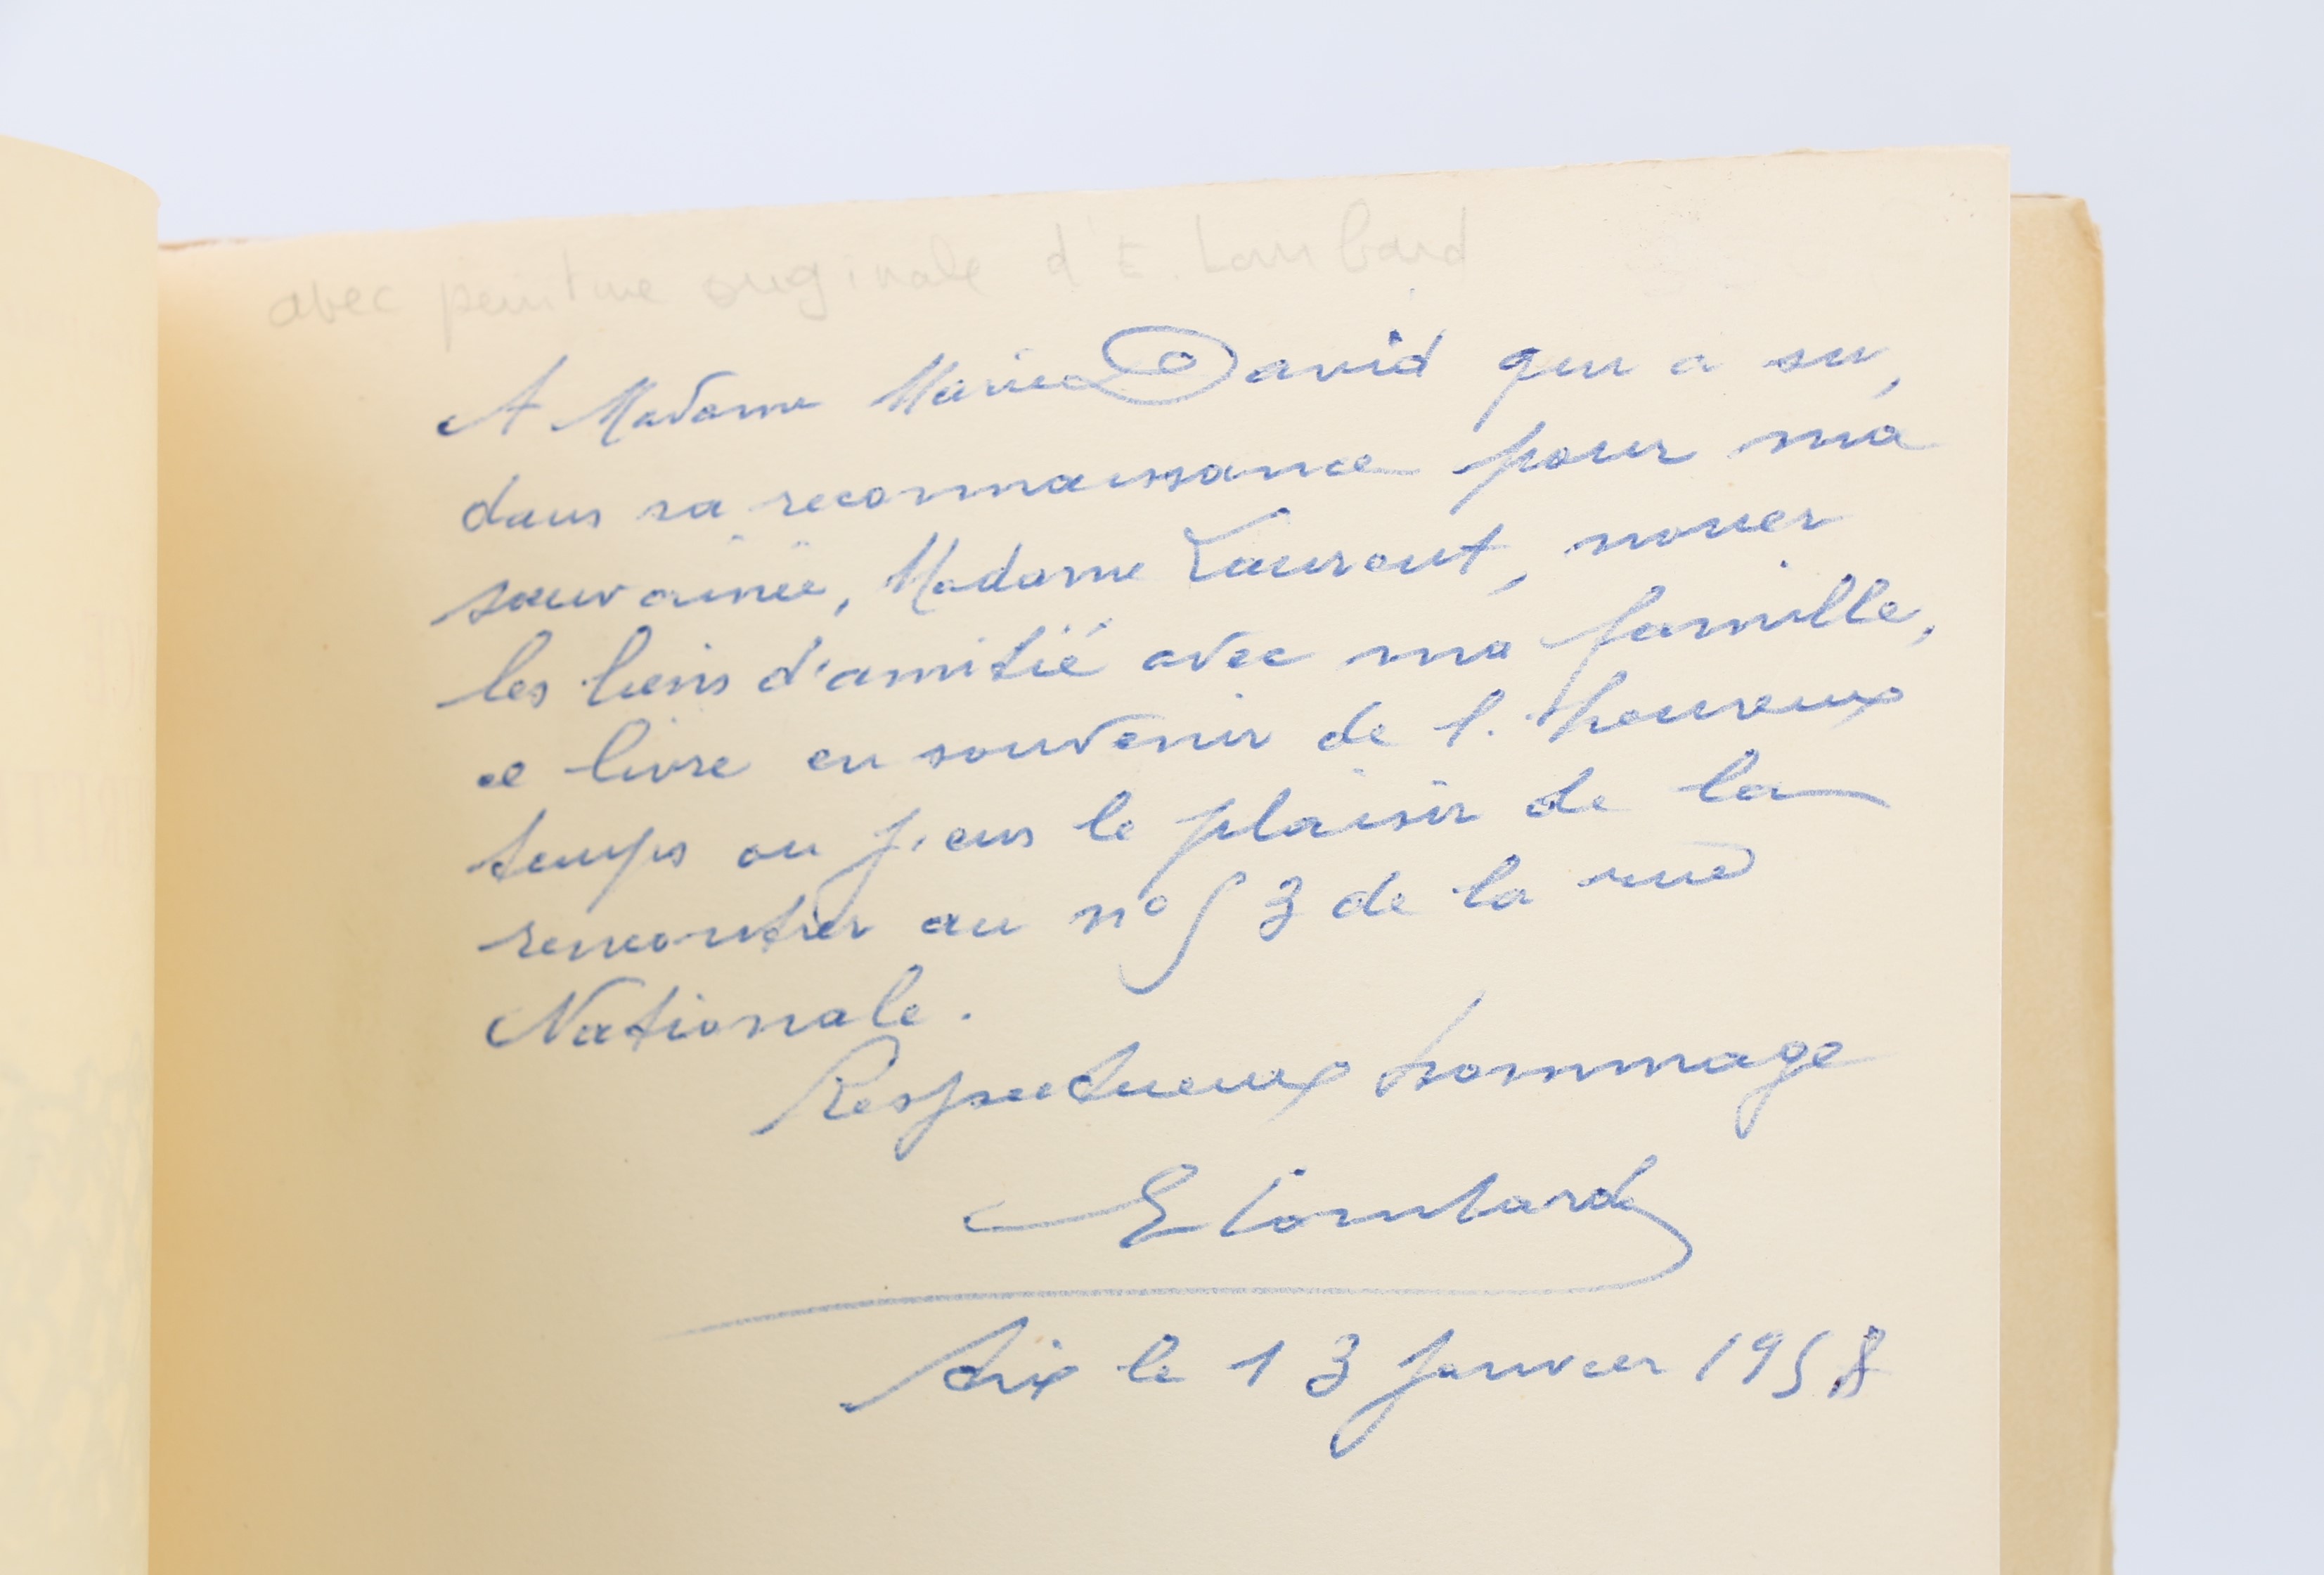 avec peinture originale d'E. Lombard
A Madame Marie David qui a su,
dans sa reconnaissance pour ma
sœur ainée, Madame Laurent, nouer
les liens d'amitié avec ma famille,
ce livre en souvenir de l'heureux
temps ou j'eus le plaisir de la
rencontrer au n° 53 de la rue
Nationale.
Respectueux hommage
E Lombard
Aix le 13 Janvier 1958